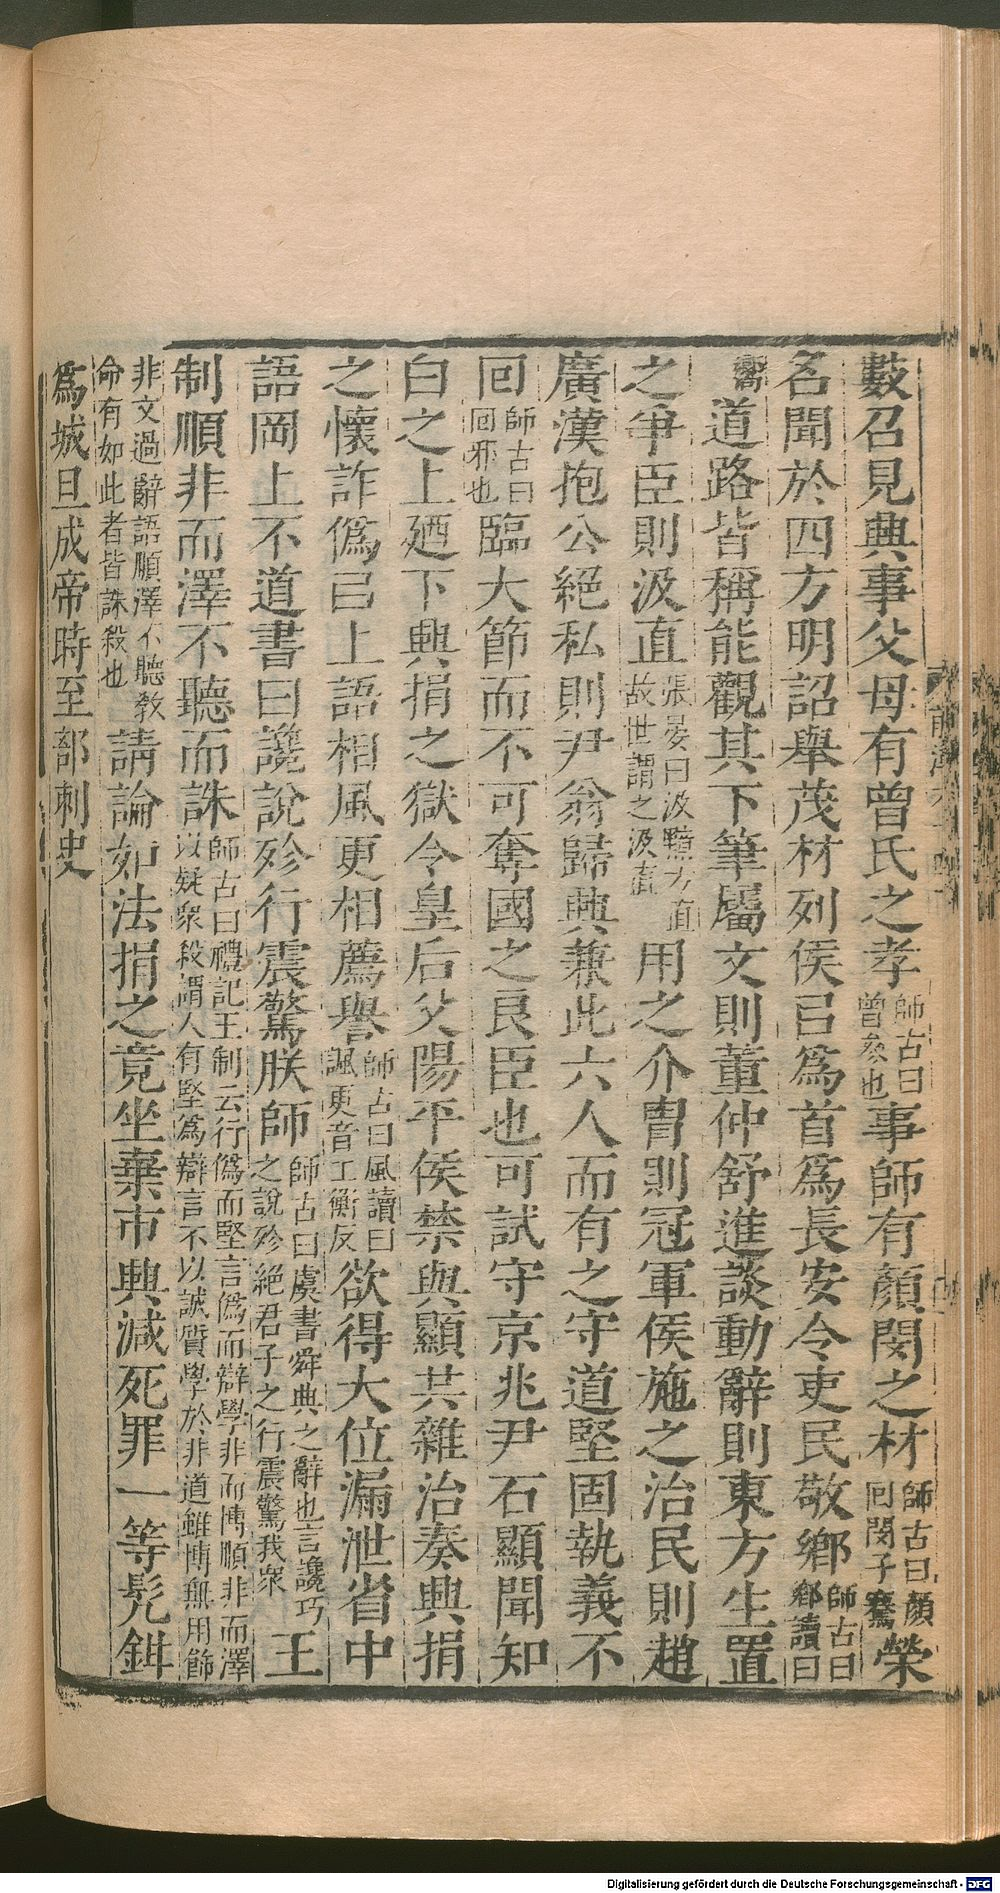 數召見興事父母有曾氏之孝師古曰曾參也事師有顏閔之材師古曰顏回閔子騫榮
名聞於四方明詔舉茂材列侯㠯爲首爲長安令吏民敬鄉師古曰鄉讀曰
嚮道路皆稱能觀其下筆屬文則董仲舒進談動辭則東方生置
之爭臣則汲直張晏曰汲黯方直故世謂之汲直用之介胄則冠軍侯施之治民則趙
廣漢抱公絕私則尹翁歸興兼此六人而有之守道堅固執義不
回師古曰回邪也臨大節而不可奪國之良臣也可試守京兆尹石顯聞知
白之上廼下興捐之獄令皇后父陽平侯禁與顯共雜治奏興捐
之懷詐僞㠯上語相風更相薦譽師古曰風讀曰諷更音工衡反欲得大位漏泄省中
語罔上不道書曰讒說殄行震驚朕師師古曰虞書舜典之辭也言讒巧之說殄絕君子之行震驚我衆王
制順非而澤不聽而誅師古曰禮記王制云行僞而堅言僞而辯學非而博順非而澤以疑衆殺謂人有堅爲辯言不以誠質學於非道雖博無用飾
非文過辭語順澤不聽教命有如此者皆誅殺也請論如法捐之竟坐棄市興減死罪一等髡鉗
爲城旦成帝時至部刺史
Digitalisierung gefördert durch die Deutsche Forschungsgemeinschaft - DFG